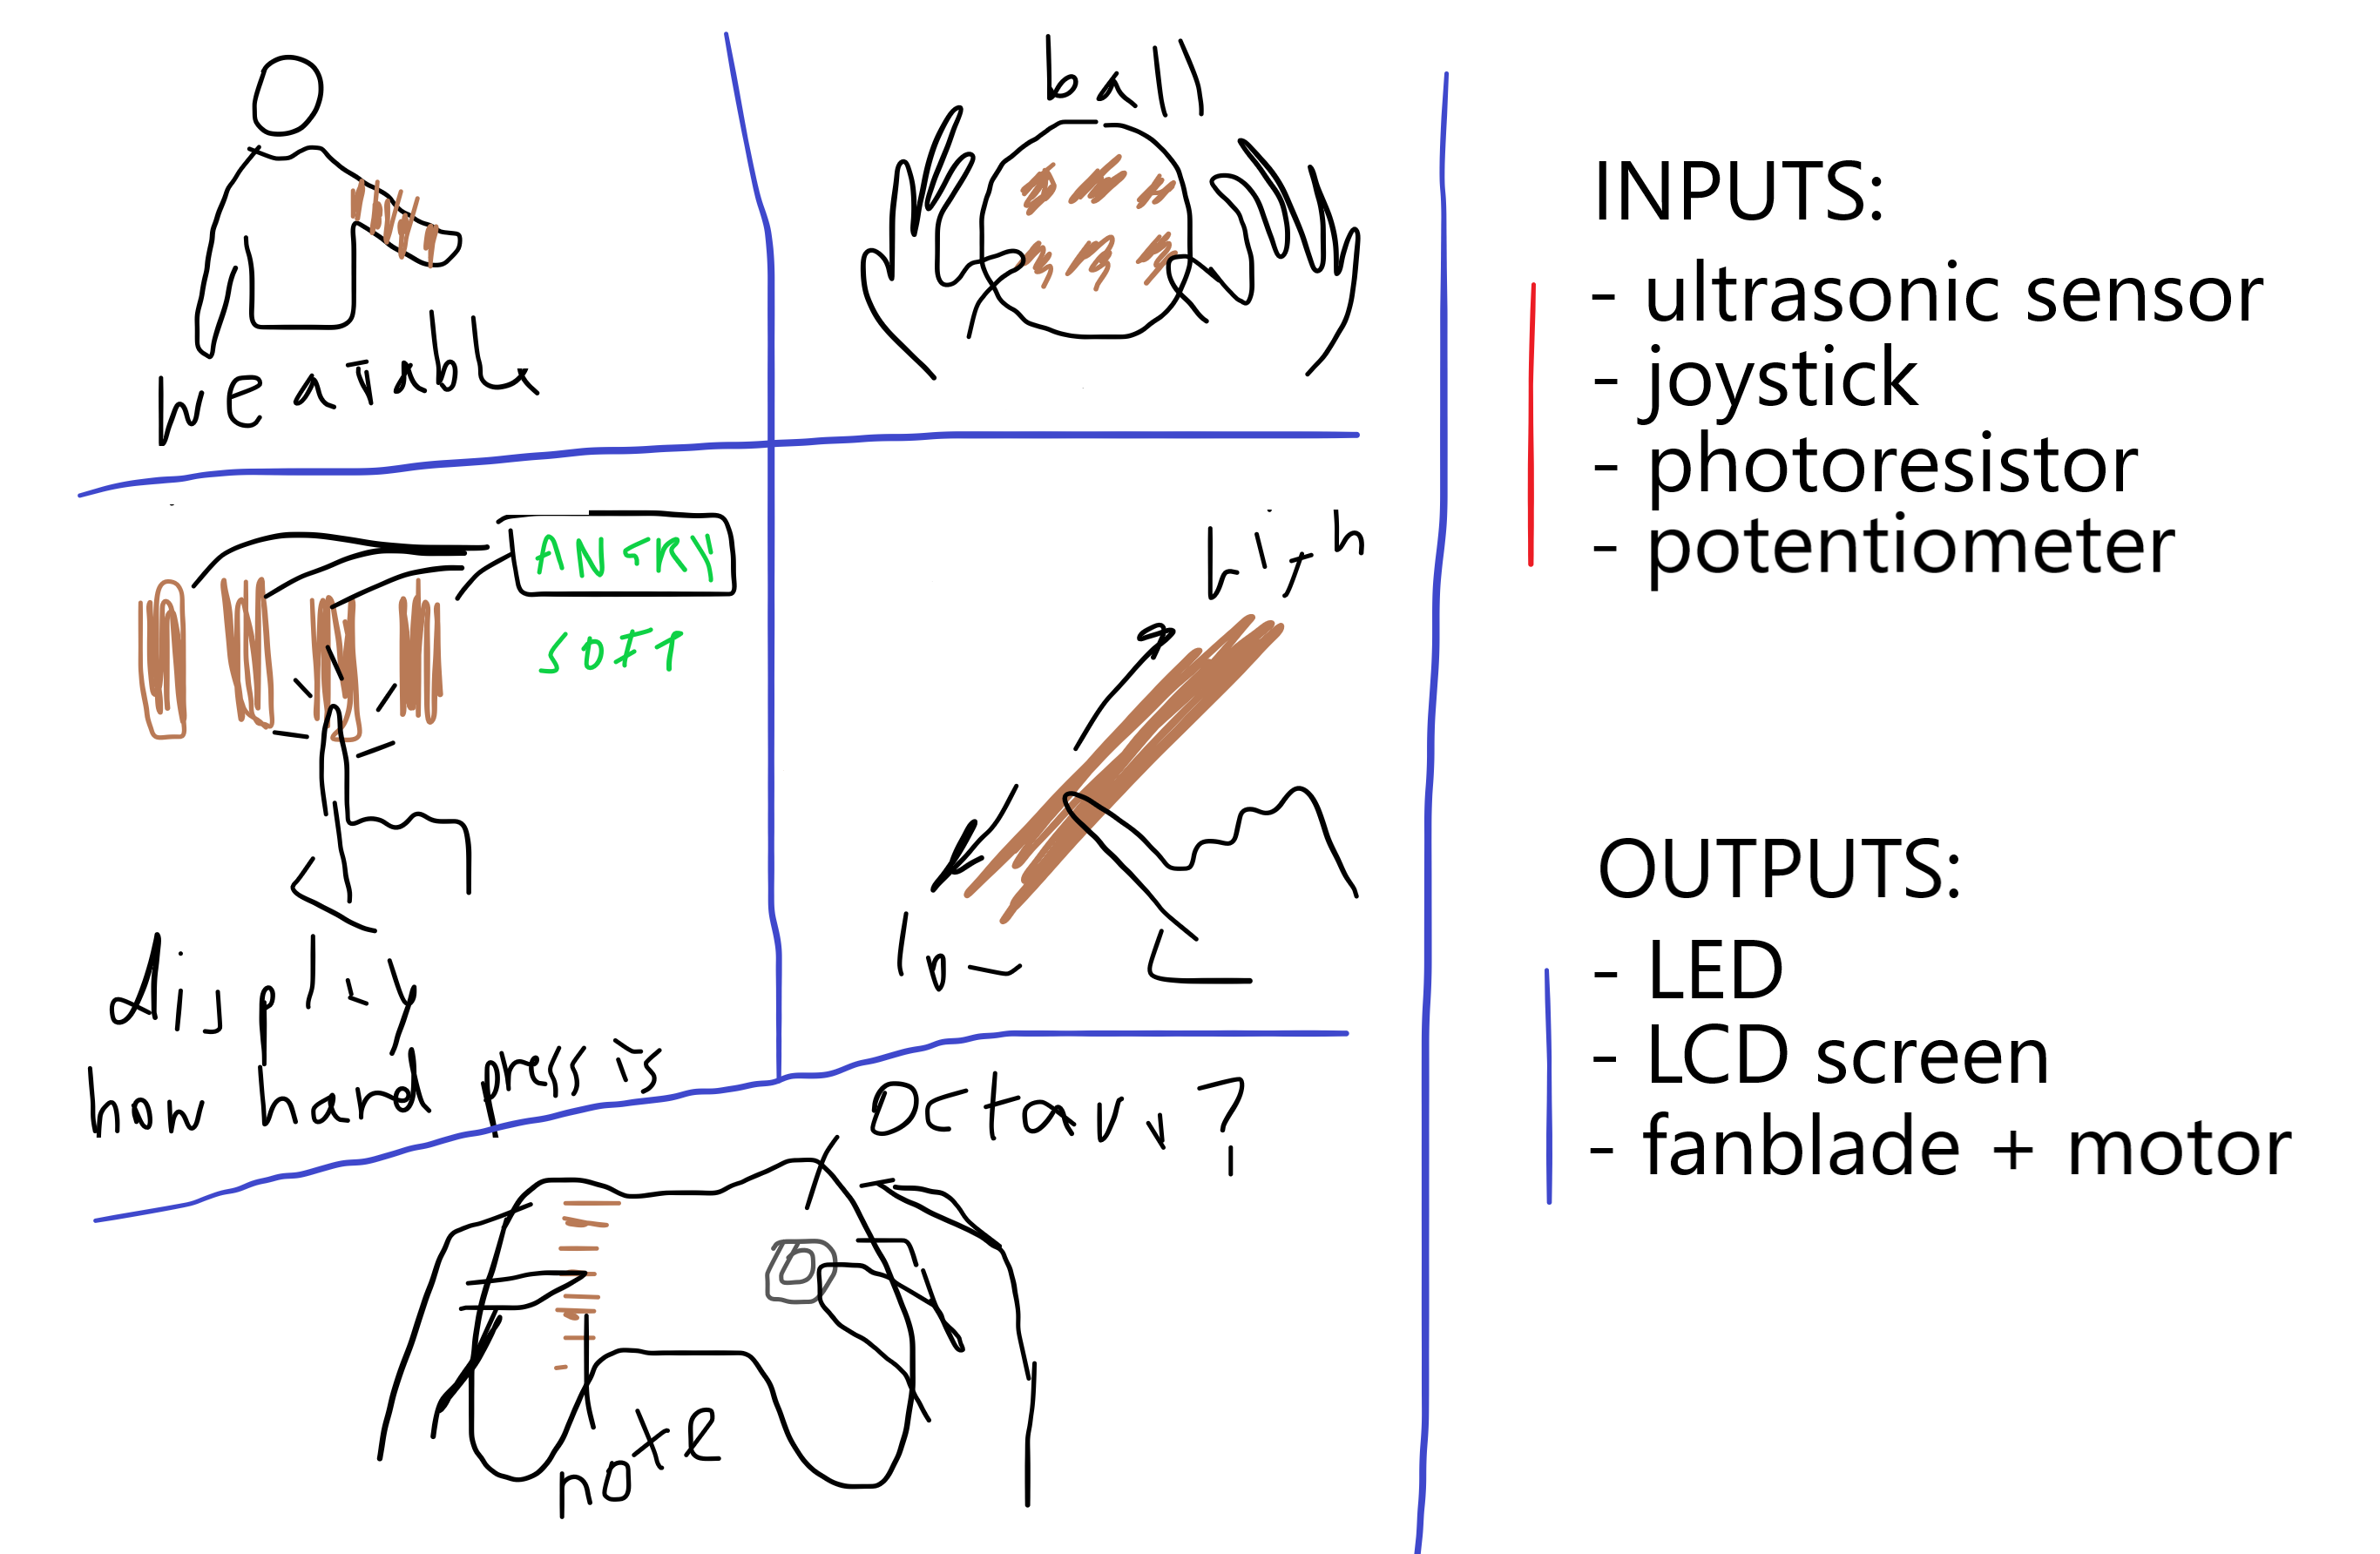 wearable
ball
ANGRY
SOFT
high
low
display
how hard press is
octave?
note
INPUTS:
- ultrasonic sensor
- joystick
- photoresistor
- potentiometer
OUTPUTS:
- LED
- LCD screen
- fanblade + motor